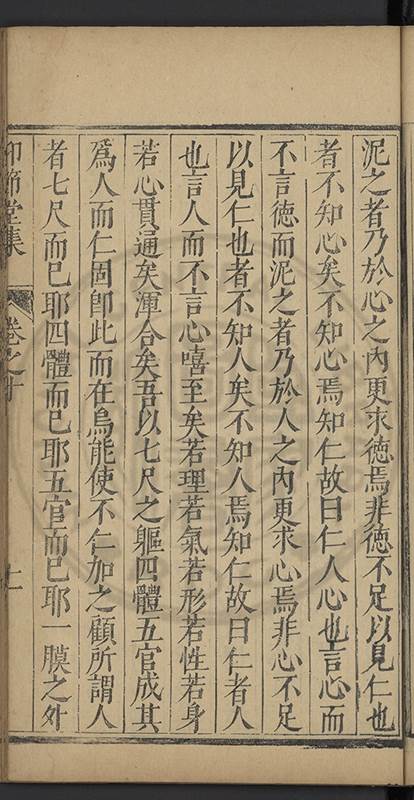 泥之者乃於心之內更求德焉非德不足以見仁也
者不知心矣不知心焉知仁故曰仁人心也言心而
不言德而泥之者乃於人之內更求心焉非心不足
以見仁也者不知人矣不知人焉知仁故曰仁者人
也言人而不言心嘻至矣若理若氣若形若性若身
若心貫通矣渾合矣吾以七尺之軀四體五官成其
爲人而仁固卽此而在烏能使不仁加之顧所謂人
者七尺而已耶四體而已耶五官而已耶一膜之外
仰節堂集 卷之十